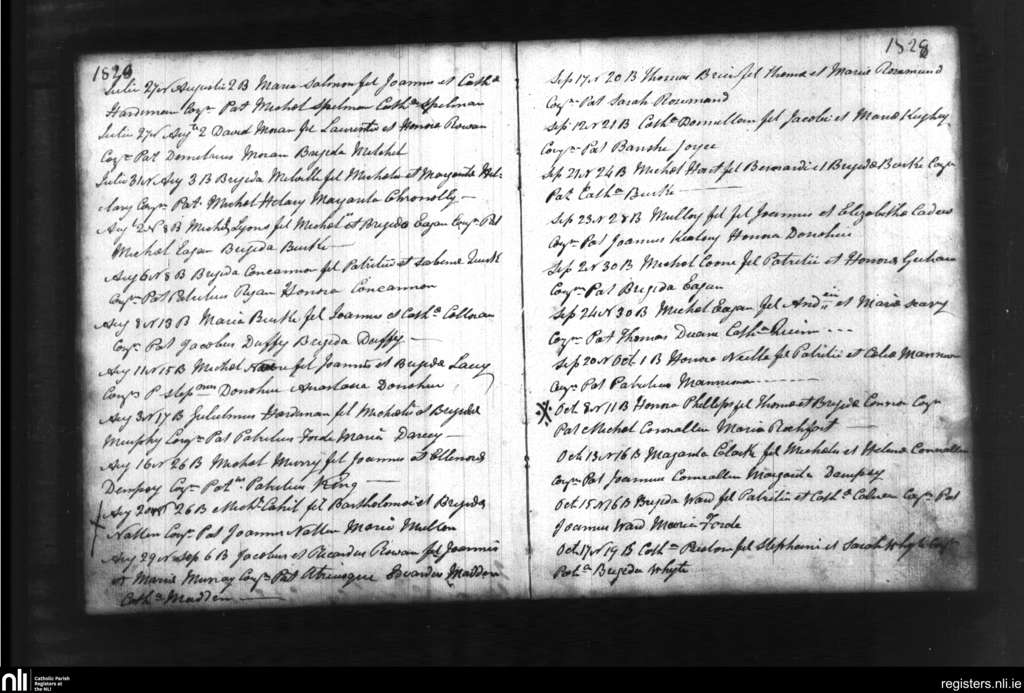 1828
Julii 27 N Augustii 2 B Maria Salmon fil Joannis et Cathª
Hardiman Conj. Pat Michel Spelman Cathª Spelman
Julii 27 N Aug 2 David Moran fil Laurentii et Honora Rowan
Conj. Pat Demetrius Moran Brigida Mitchel
Julii 31 N Aug 3 B Brigida Melville fil Michelis et Margarita Hil-
lary Conj. Pat. Michel Helary Margarita Chronolly
Aug 2 N 8 B Michel Lyons fil Michel et Brigida Eagan Conj. Pat
Michel Eagan Brigida Burke
Aug 6 N 8 B Brigida Concannon fil Patritii et Sabina
Conj. Pat Patritius Ryan Honora Concannon
Aug 8 N 13 B Maria Burke fil Joannis et Cathª
Conj. Pat Jacobus Duffy Brigida Duffy
Aug 11 N 15 B Michel fil Joannis et Brigida Lacy
Conj. P Donohue Anastasia Donohue
Aug 3 N 17 B Gulielmus Hardiman fil Michaelis et Brigida
Murphy Conj. Pat Patritius Forde Maria Darcey
Aug 16 N 26 B Michel Murry fil Joannis et Ellenora
Dempsey Conj. Patritius King
Aug 20 N 26 B Mich Cahil fil Bartholomei et Brigida
Natten Conj. Pat Joannes Natten Maria Mullen
Aug 29 N Sep 6 B Jacobus et Ricardus Rowan fil Joannis
et Maria Murray Conj. Pat Utriusque Edvardus Madden
Cathª Madden
1828
Sep 17 N 20 B Thomas Brien fil Thoma et Maria Rosemund
Conj. Pat Sarah Rosemund
Sep 12 N 21 B Cathª Donnellan fil Jacobi et Maria Kughoy
Conj. Pat Joyce
Sep 21 N 24 B Michel Hart fil Bernardi et Brigida Burke Conj.
Pat Cathª Burke
Sep 23 N 28 B Mulloy fil fil Joannis et Elizabetha
Conj. Pat Joannes Kealeny Honora Donohue
Sep 2 N 30 B Michel Coone fil Patritii et Honora
Conj. Pat Brigida Eagan
Sep 24 N 30 B Michel Eagan fil et Maria
Conj. Pat Thomas Duane Cathª
Sep 20 N Oct. 1 B Honora Neville fil Patritii et Celia Mannion
Conj. Pat Patritius Mannion
Oct 8 N 11 B Honora Phillips fil Thoma et Brigida Connor Conj.
Pat Michel Conmallen Maria Rochfort
Oct 13 N 16 B Margarita Clark fil Michelis et Helena
Conj. Pat Joannes Conmallen Margarita Dempsey
Oct 15 N 16 B Brigida Ward fil Patritii et Cathª Conj. Pat
Joannes Ward Maria Forde
Oct 17 N 19 B Cathª fil Stephani et Sarah Whyte Conj.
Patª Brigida Whyte
nli
Catholic Parish
Registers at
the NLI
registers.nli.ie